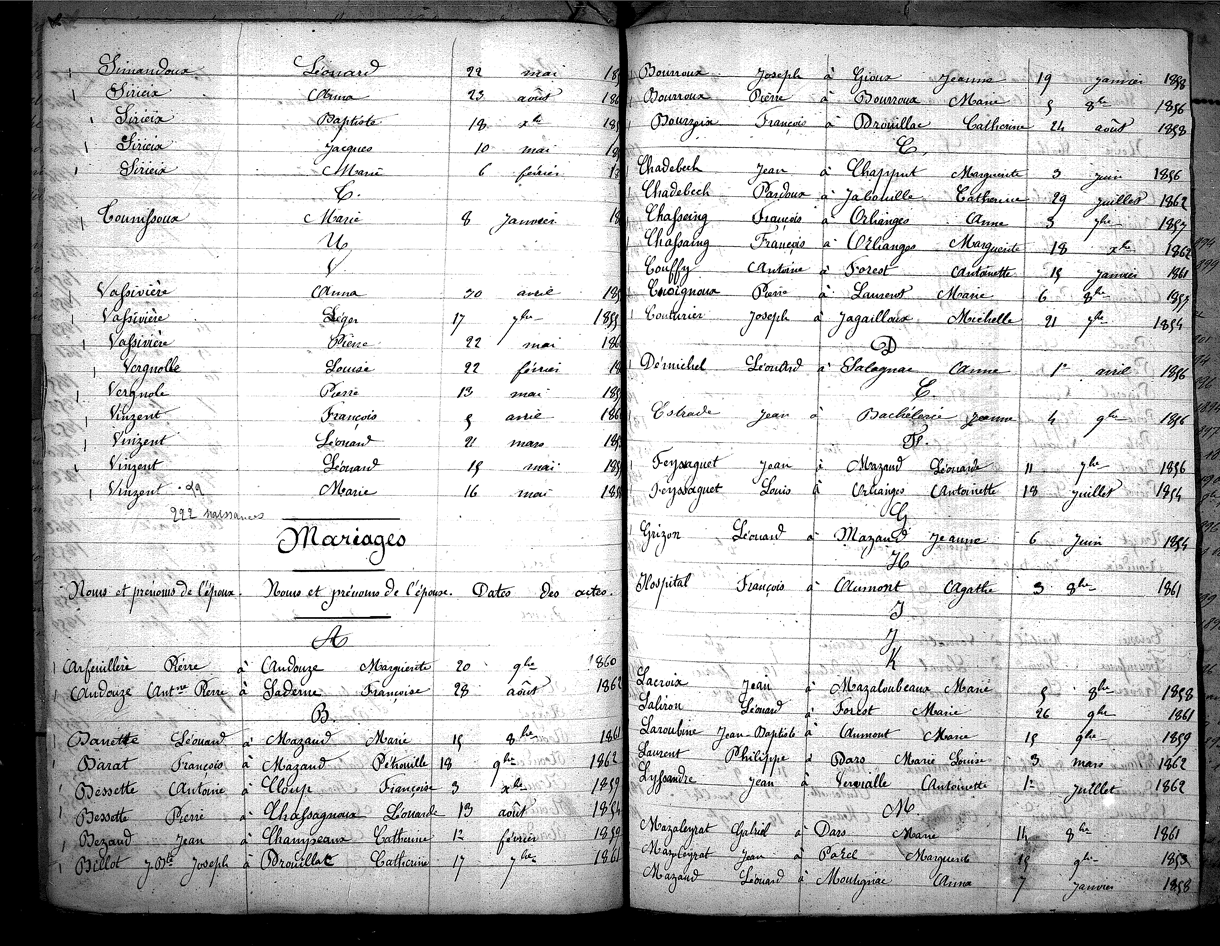 Simandoux Léonard 22 mai 18
Sirieix Anna 23 août 186
Sirieix Baptiste 18 xbre 185
Sirieix Jacques 10 mai 18
Sirieix Marie 6 février 18
T.
Tounissoux Marie 8 Janvier 18
U
V
Vassivière Anna 30 avril 185
Vassivière Léger 17 7bre 1855
Vassivière Pierre 22 mai 186
Vergnolle Louise 22 février 18
Vergnole Pierre 13 mai 185
Vinzent François 5 avril 186
Vinzent Léonard 21 mars 185
Vinzent Léonard 15 mai 185
Vinzent Marie 16 mai 185
222 naissances
Mariages
Noms et prénoms de l'époux. Noms et prénoms de l'épouse. Dates des actes.
A
Arfeuillère Pierre à Andouze Marguerite 20 9bre 1860
Andouze Antne Pierre à Laderne Françoise 28 août 1862
B.
Banette Léonard à Mazaud Marie 15 8bre 1861
Barat François à Mazaud Pétronille 18 9bre 1862
Bessette Antoine à Françoise 3 xbre 1859
Bessette Pierre à Chassagnoux Léonarde 13 août 1854
Bezaud Jean à Champeaux Catherine 12 février 1859
Billot J. Bte Joseph à Brouillac Catherine 17 7bre 1861
Bourroux Joseph à Gioux Jeanne 19 janvier 1858
Bourroux Pierre à Bourroux Marie 5 8bre 1856
Bourzeix François à Brouillac Catherine 24 août 1858
C.
Chadebech Jean à Chapput Marguerite 3 juin 1856
Chadebech Pardoux à Jabouille Catherine 29 juillet 1862
Chasseing François à Orlianges Anne 3 7bre 1857
Chassaing François à Orlianges Marguerite 18 xbre 1862
Couffy Antoine à Forest Antoinette 15 janvier 1861
Cuoignoux Pierre à Laurent Marie 6 8bre 1857
Couturier Joseph à Jagailloux Michelle 21 7bre 1854
D
Démichel Léonard à Salagnac Anne 1er avril 1856
E.
Estrade Jean à Bachélerie Jeanne 4 9bre 1856
F.
Feyssaguet Jean à Mazaud Léonarde 11 7bre 1856
Feyssaguet Louis à Orlianges Antoinette 18 juillet 1854
G
Grizon Léonard à Mazaud Jeanne 6 Juin 1854
H
Hospital François à Aumont Agathe 3 8bre 1861
I
J
K
Lacroix Jean à Mazaloubeaux Marie 5 8bre 1858
Laliron Léonard à Forest Marie 26 9bre 1861
Laroubine Jean-Baptiste à Aumont Marie 15 9bre 1859
Laurent Philippe à Dars Marie Louise 3 mars 1862
Lyssandre Jean à Vervialle Antoinette 1er juillet 1862
M.
Mazaleyrat Gabriel à Dars Marie 14 8bre 1861
Mazaleyrat Jean à Porel Marguerite 15 9bre 1853
Mazaud Léonard à Montignac Anna 7 janvier 1858